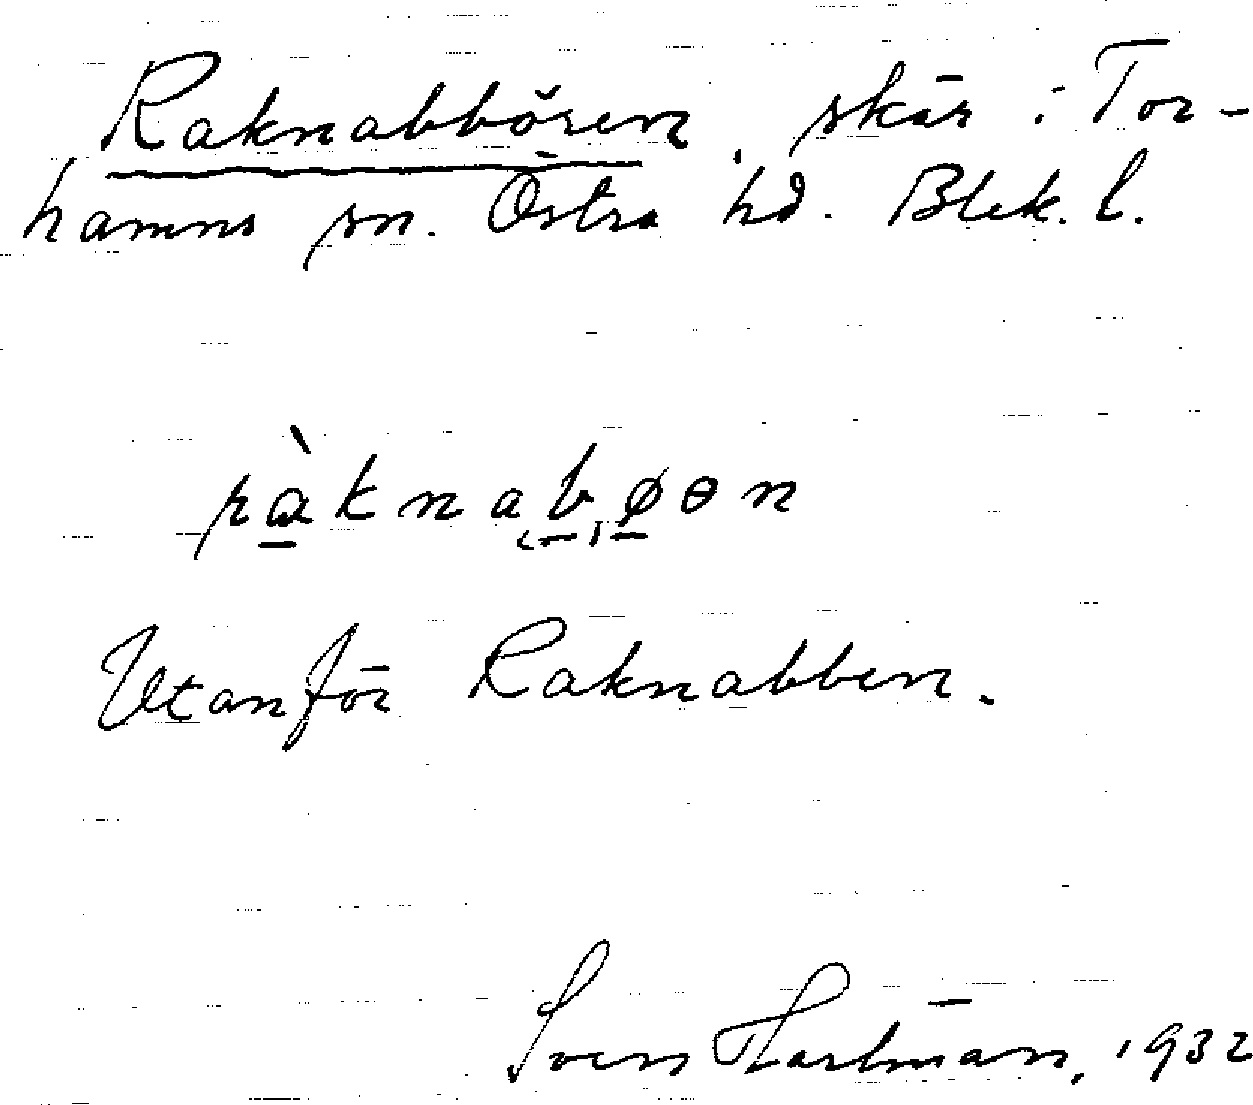 Raknabbören, skär i Tor-
hamns sn. Östra hd. Blek. l.
ràknabøɵn
Utanför Raknabben.
Sven Hartman, 1932